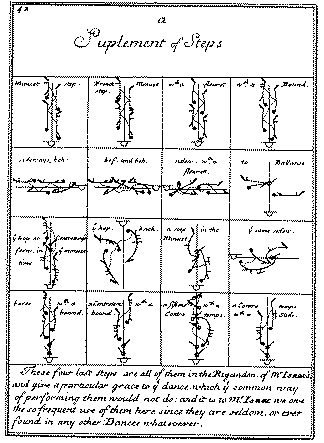 42
a
Suplement of Steps
Minuet step.
French step.
Minuet
wth a fleuret
wth a Bound.
sideways, beh:
bef: and beh.
sidew. wth a fleuret.
to
Ballance
ye hop
in ye minuet
time
ye hop.
back.
a step in the Minuet
ye same sidew.
wth a bound.
a Contretems
bound
wth a
a Contre
temps.
a Contre
temps
Side.
These four last Steps are all of them in the Rigaudon of Mr. Isaac's
and give a particular grace to ye dance, which ye common way
of performing them would not do: and it is to Mr. Isaac we owe
the so frequent use of them here since they are seldom, or ever
found in any other Dances whatsoever.